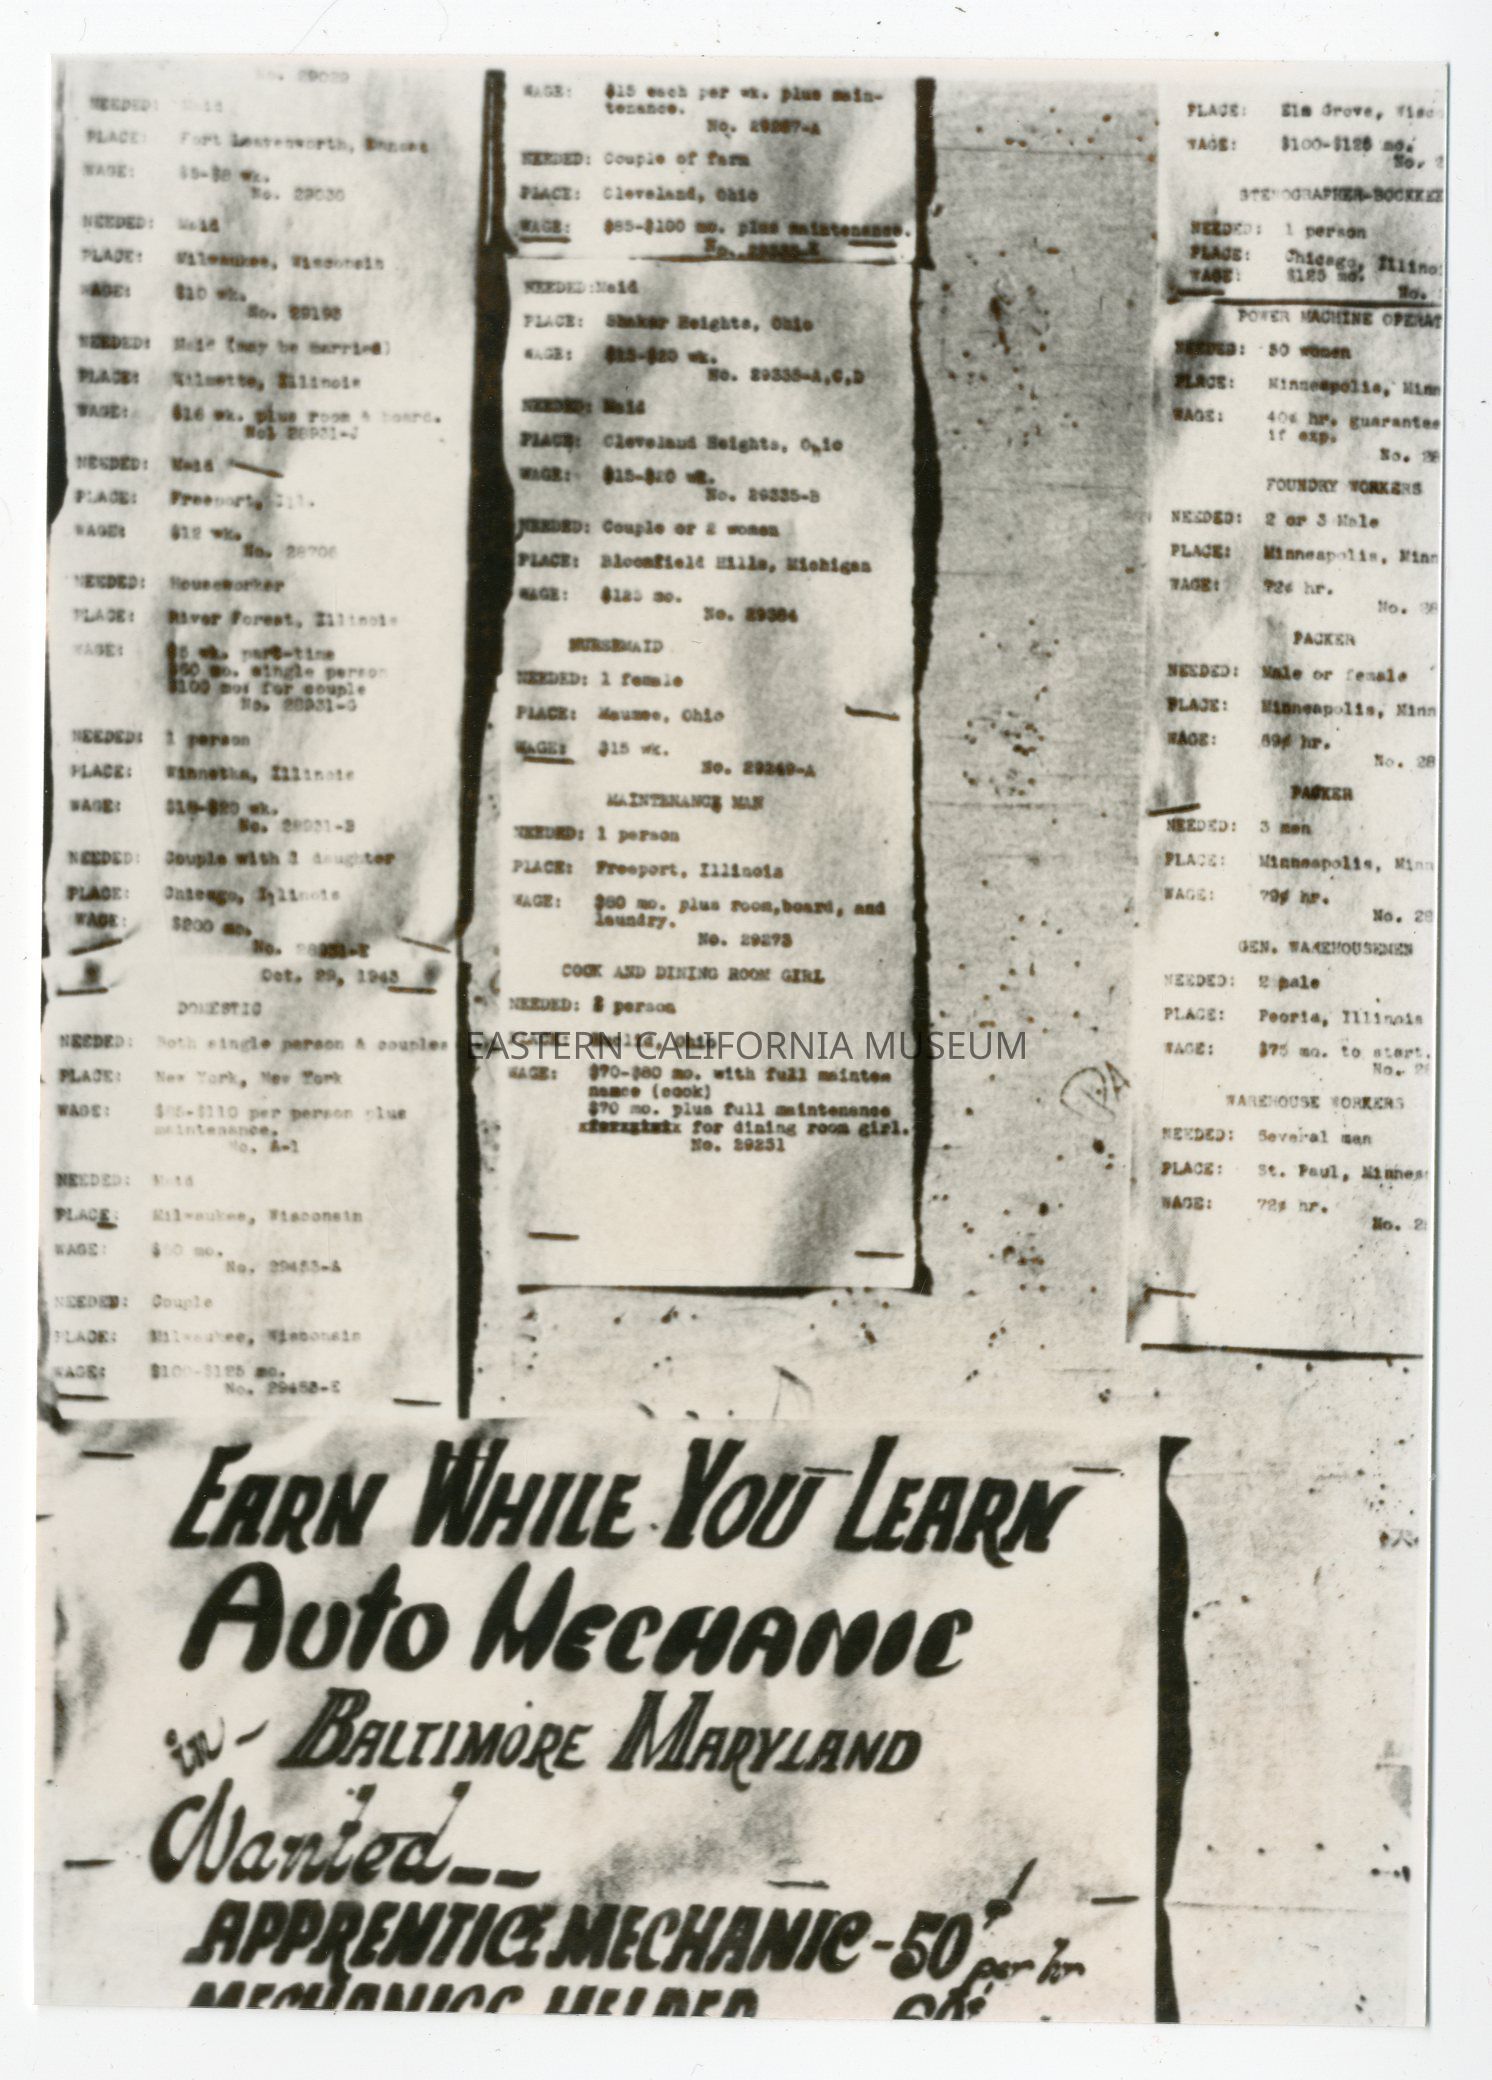 No. 29029
NEEDED: Maid
PLACE: Fort Leavenworth, Kansas
WAGE: $5-$8 wk.
No. 29030
NEEDED: Maid
PLACE: Milwaukee, Wisconsin
WAGE: $10 wk.
No. 29193
NEEDED: Maid (may be married)
PLACE: Wilmette, Illinois
WAGE: $16 wk. plus room & board.
No. 28931-J
NEEDED: Maid
PLACE: Freeport, Ill.
WAGE: $12 wk.
No. 28706
NEEDED: Houseworker
PLACE: River Forest, Illinois
WAGE: $5 wk. part-time
$50 mo. single person
$100 mo. for couple
No. 28931-G
NEEDED: 1 person
PLACE: Winnetka, Illinois
WAGE: $18-$20 wk.
No. 28931-B
NEEDED: Couple with 1 daughter
PLACE: Chicago, Illinois
WAGE: $200 mo.
No. 28931-E
Oct. 29, 1943
DOMESTIC
NEEDED: Both single person & couples
PLACE: New York, New York
WAGE: per person plus
maintenance.
No. A-1
NEEDED: Maid
PLACE: Milwaukee, Wisconsin
WAGE: mo.
No. 29453-A
NEEDED: Couple
PLACE: Milwaukee, Wisconsin
WAGE: $100-$125 mo.
No. 29453-E
WAGE: $15 each per wk. plus main-
tenance.
No. 29267-A
NEEDED: Couple of farm
PLACE: Cleveland, Ohio
WAGE: $85-$100 mo. plus maintenance.
No.
NEEDED:Maid
PLACE: Shaker Heights, Ohio
WAGE: $15-$20 wk.
No. 29335-A,C,D
NEEDED: Maid
PLACE: Cleveland Heights, Ohio
WAGE: $15-$20 wk.
No. 29335-B
NEEDED: Couple or 2 women
PLACE: Bloomfield Hills, Michigan
WAGE: $125 mo.
No. 29364
NURSEMAID
NEEDED: 1 female
PLACE: Maumee, Ohio
WAGE: $15 wk.
No. 29249-A
MAINTENANCE MAN
NEEDED: 1 person
PLACE: Freeport, Illinois
WAGE: $60 mo. plus room,board, and
laundry.
No. 29273
COOK AND DINING ROOM GIRL
NEEDED: 2 person
PLACE: Euclid, Ohio
WAGE: $70-$80 mo. with full mainten
nance (cook)
$70 mo. plus full maintenance
for dining room girl.
No. 29251
PLACE: Elm Grove, Wisco
WAGE: $100-$125 mo.
No. 2
STENOGRAPHER-BOOKKEE
NEEDED: 1 person
PLACE: Chicago, Illino
WAGE: $125 mo.
No.
POWER MACHINE OPERAT
NEEDED: 50 women
PLACE: Minneapolis, Minn
WAGE: 40¢ hr. guarantee
if exp.
No. 28
FOUNDRY WORKERS
NEEDED: 2 or 3 Male
PLACE: Minneapolis, Minn
WAGE: 72¢ hr.
No. 28
PACKER
NEEDED: Male or female
PLACE: Minneapolis, Minn
WAGE: 69¢ hr.
No. 28
PACKER
NEEDED: 3 men
PLACE: Minneapolis, Minn
WAGE: 79¢ hr.
No. 28
GEN. WAREHOUSEMEN
NEEDED: 2 male
PLACE: Peoria, Illinois
WAGE: $75 mo. to start.
No. 28
WAREHOUSE WORKERS
NEEDED: Several men
PLACE: St. Paul, Minnes
WAGE: 72¢ hr.
No. 28
EASTERN CALIFORNIA MUSEUM
EARN WHILE YOU LEARN
AUTO MECHANIC
in - BALTIMORE MARYLAND
Wanted--
APPRENTICE MECHANIC - 50¢ per hr
MECHANICS HELPER 60¢